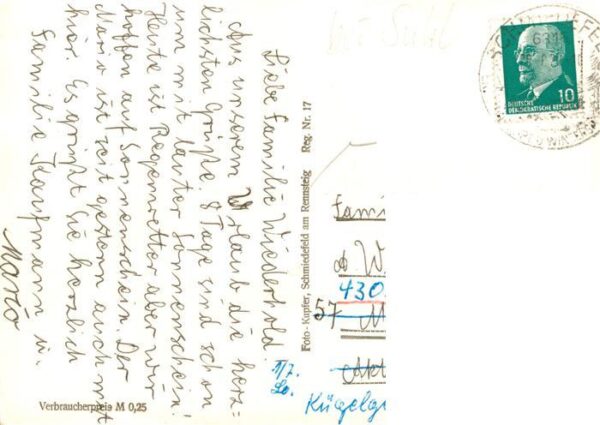 Liebe Familie Wiederhold.
Aus unserem Urlaub die herz=
lichsten Grüße. 8 Tage sind schon
um mit lauter Sonnenschein!
Heute ist Regenwetter aber wir
hoffen auf Sonnenschein. Der
Mario ist seit gestern auch mit
hier. Es grüßt Sie herzlich
Familie Kaufmann u.
Mario
Verbraucherpreis M 0,25
Foto-Kupfer, Schmiedefeld am Rennsteig Reg. Nr. 17
bei Suhl
10
DEUTSCHE
DEMOKRATISCHE REPUBLIK
Fami
W
430
57 M
1/7.
Lo.
Kügelg